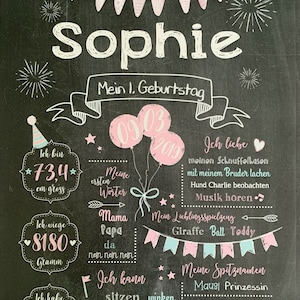 Sophie
Mein 1. Geburtstag
09
03
2019
Ich bin
73,4
cm gross
Meine
ersten
Wörter
Mama
Papa
da
nam nam nam
Ich liebe
meinen Schnuffelhasen
mit meinem Bruder lachen
Hund Charlie beobachten
Musik hören
Ich wiege
8180
Gramm
Mein Lieblingsspielzeug
Giraffe Ball Teddy
Ich kann
sitzen
winken
Meine Spitznamen
Mausi Prinzessin
Ich habe